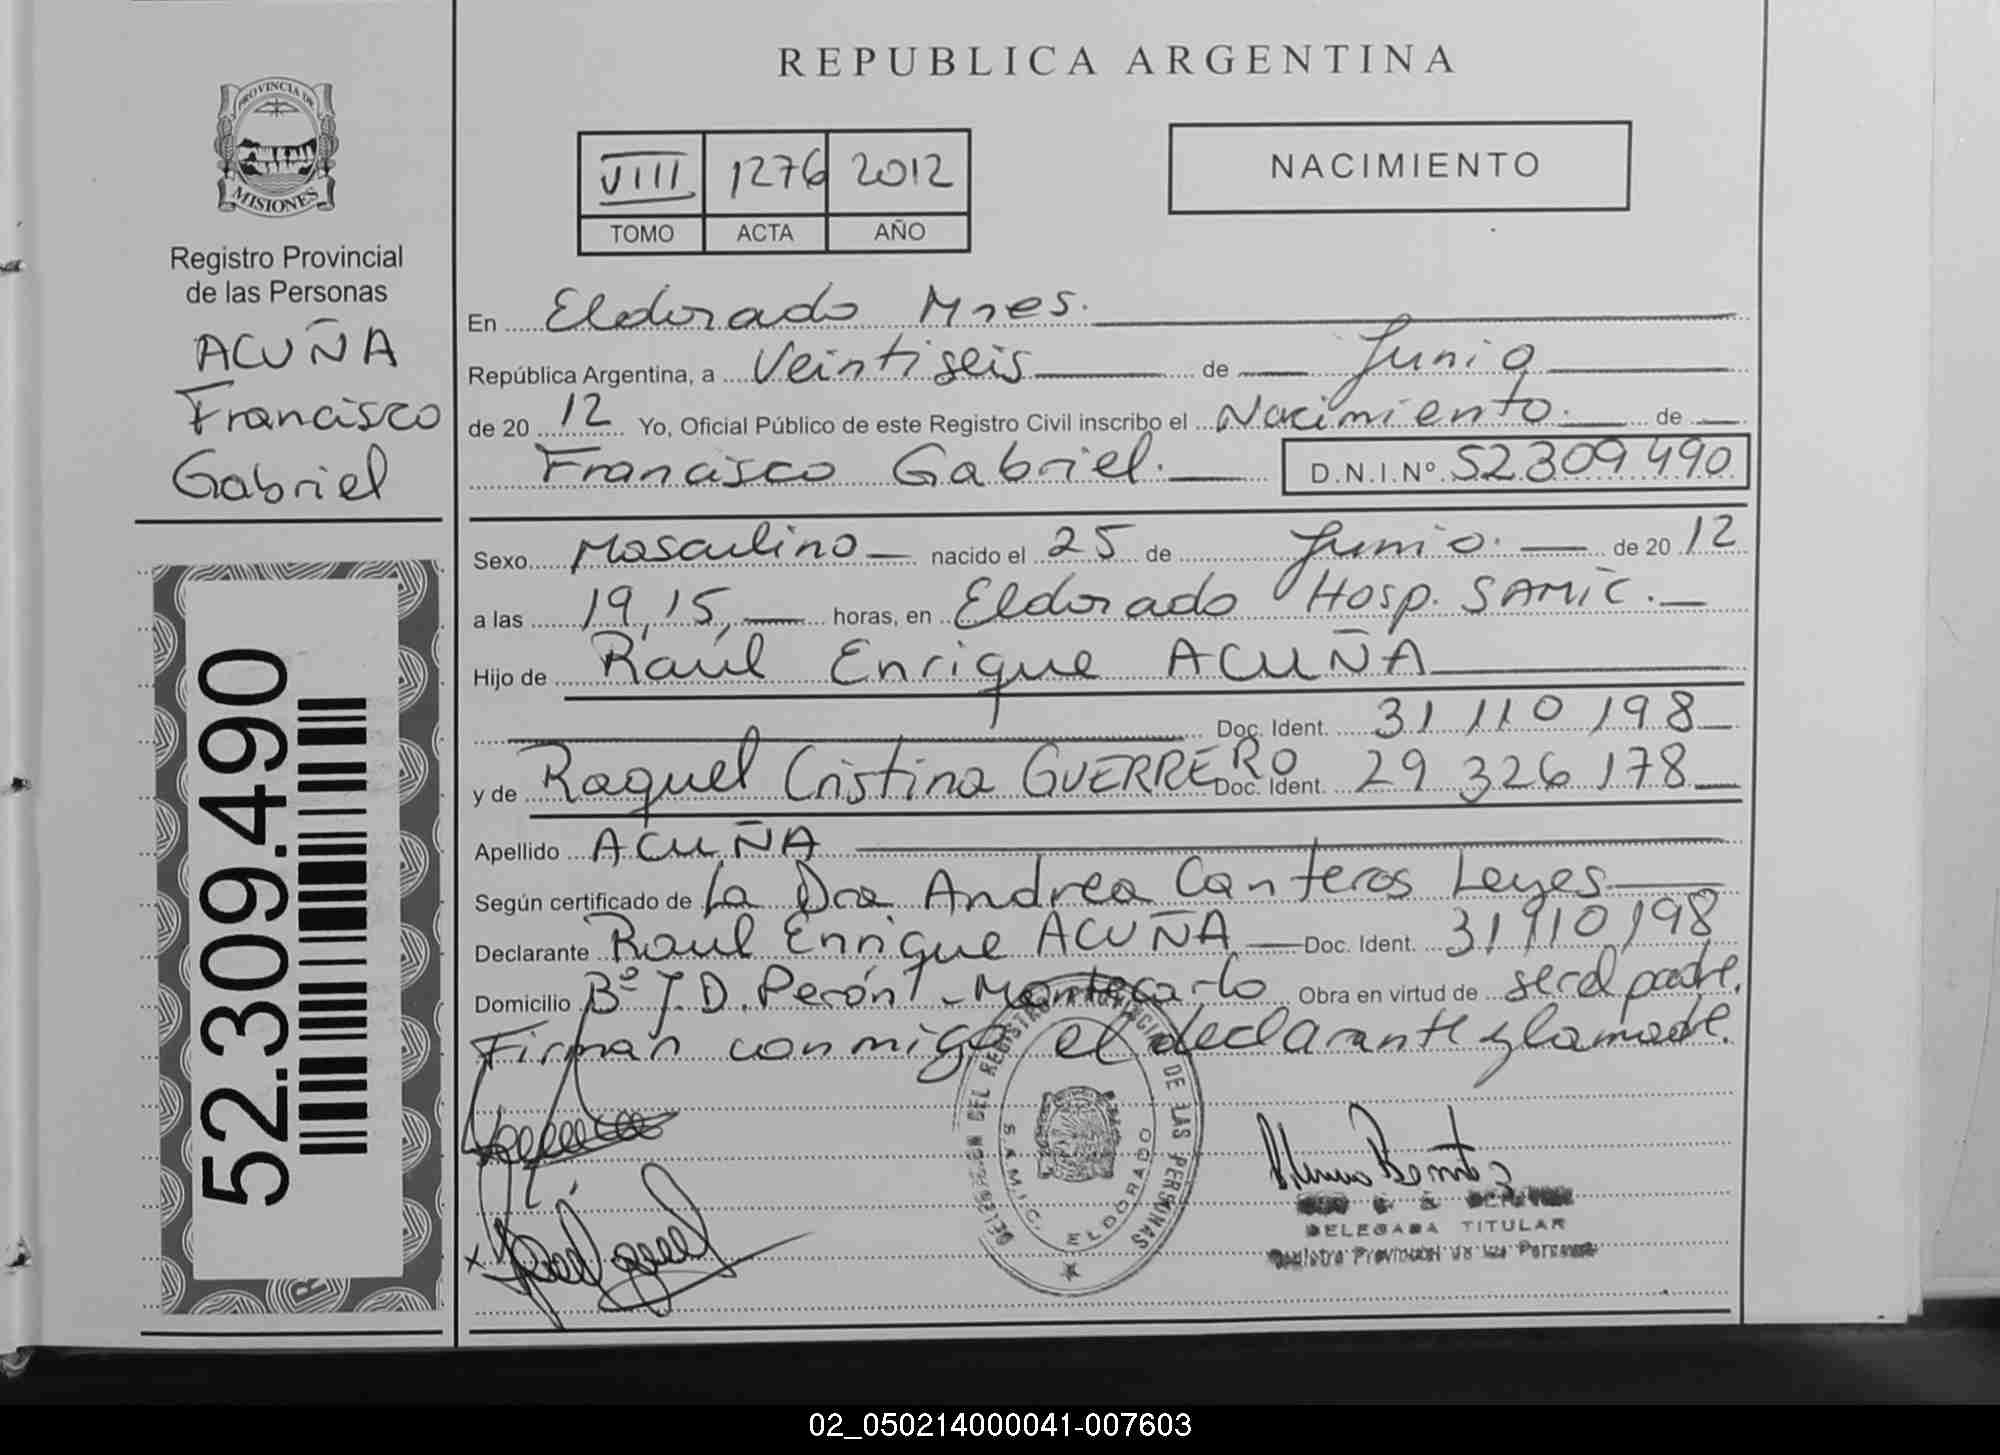 PROVINCIA DE
MISIONES
Registro Provincial
de las Personas
ACUÑA
Francisco
Gabriel
52.309.490
REPUBLICA ARGENTINA
VIIII 1276 2012
TOMO ACTA AÑO
NACIMIENTO
En Eldorado Mnes.
República Argentina, a Veintiseis de Junio
de 20 12 Yo, Oficial Público de este Registro Civil inscribo el Nacimiento. de
Francisco Gabriel. D.N.I.Nº 52.309.490
Sexo Masculino nacido el 25 de Junio. de 20 12
a las 19,15, horas, en Eldorado Hosp. SAMIC.
Hijo de Raúl Enrique ACUÑA
Doc. Ident. 31 110 198
y de Raquel Cristina GUERRERO Doc. Ident. 29 326 178
Apellido ACUÑA
Según certificado de La Dra Andrea Canteros Leyes
Declarante Raul Enrique ACUÑA Doc. Ident. 31 110 198
Domicilio Bº J.D. Perón - Montecarlo Obra en virtud de ser el padre.
Firman conmigo el declarante y la madre.
DELEGACION DEL REGISTRO PROVINCIAL DE LAS PERSONAS
S.A.M.I.C. ELDORADO
DELEGADA TITULAR
Registro Provincial de las Personas
02_050214000041-007603